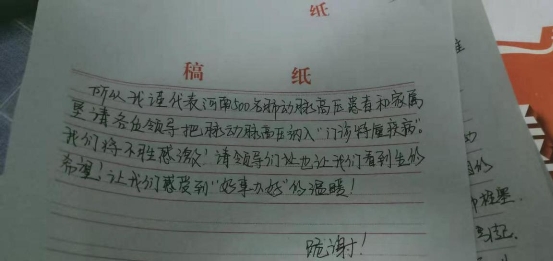 纸
稿 纸
所以我谨代表河南500名肺动脉高压患者和家属
恳请各位领导把肺动脉高压纳入"门诊特屋疾病"。
我们将不胜感激！请领导们也让我们看到生的
希望！让我们感受到"好事办好"的温暖！
跪谢！